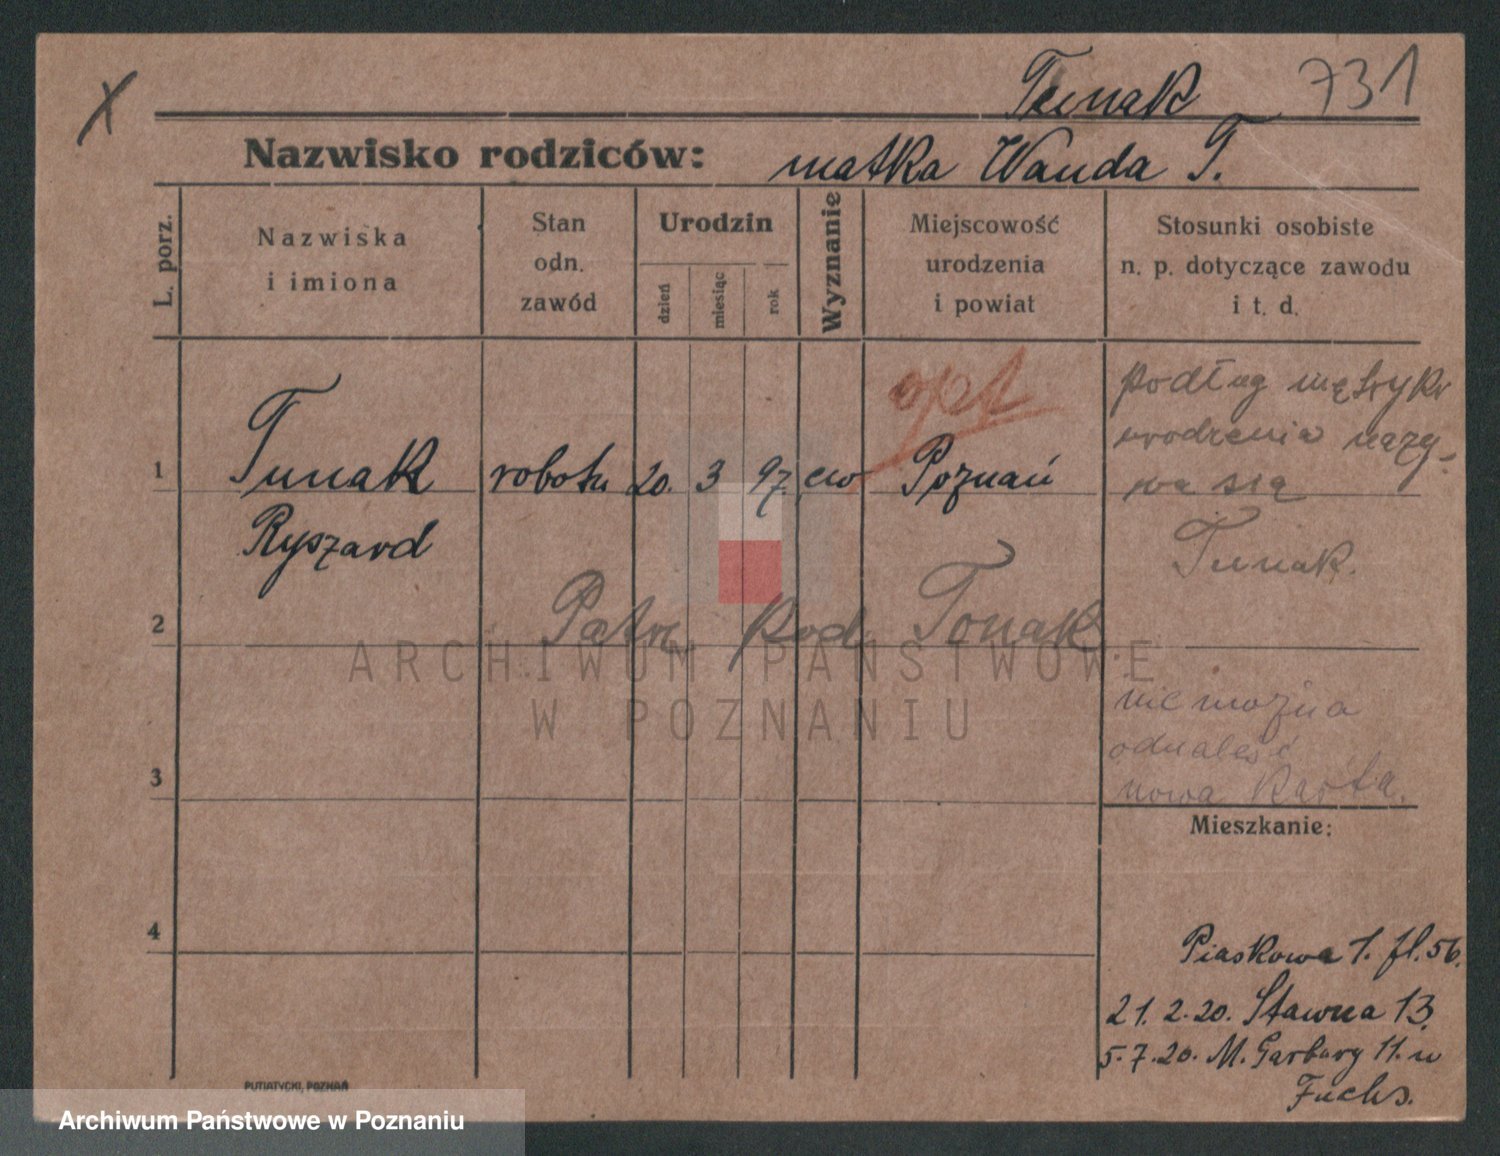 X
Tunak 731
Nazwisko rodziców: matka Wanda T.
L. porz.
Nazwiska
i imiona
Stan
odn.
zawód
Urodzin
dzień
miesiąc
rok
Wyznanie
Miejscowość
urodzenia
i powiat
Stosunki osobiste
n. p. dotyczące zawodu
i t. d.
opt
podług metryki
urodzenia nazy-
wa się
Tunak.
1 Tunak robotn 20. 3 97. ew Poznań
Ryszard
2 Patrz pod Tonak
nie można
odnaleść
nowa Karta.
3
Mieszkanie:
4
Piaskowa 1. fl. 56.
21. 2. 20. Stawna 13.
5. 7. 20. M. Garbary 11. u
Fuchs.
PUTIATYCKI, POZNAŃ
ARCHIWUM PAŃSTWOWE
W POZNANIU
Archiwum Państwowe w Poznaniu